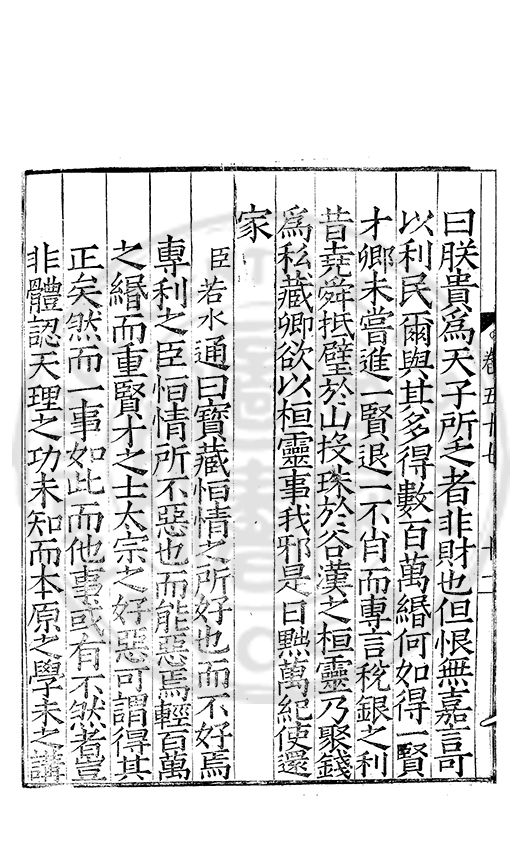 卷五十七 十二
曰朕貴爲天子所乏者非財也但恨無嘉言可
以利民爾與其多得數百萬緡何如得一賢
才卿未嘗進一賢退一不肖而專言稅銀之利
昔堯舜抵璧於山投珠於谷漢之桓靈乃聚錢
爲私藏卿欲以桓靈事我邪是日黜萬紀使還
家
臣若水通曰寶藏恒情之所好也而不好焉
專利之臣恒情所不惡也而能惡焉輕百萬
之緡而重賢才之士太宗之好惡可謂得其
正矣然而一事如此而他事或有不然者豈
非體認天理之功未知而本原之學未之講